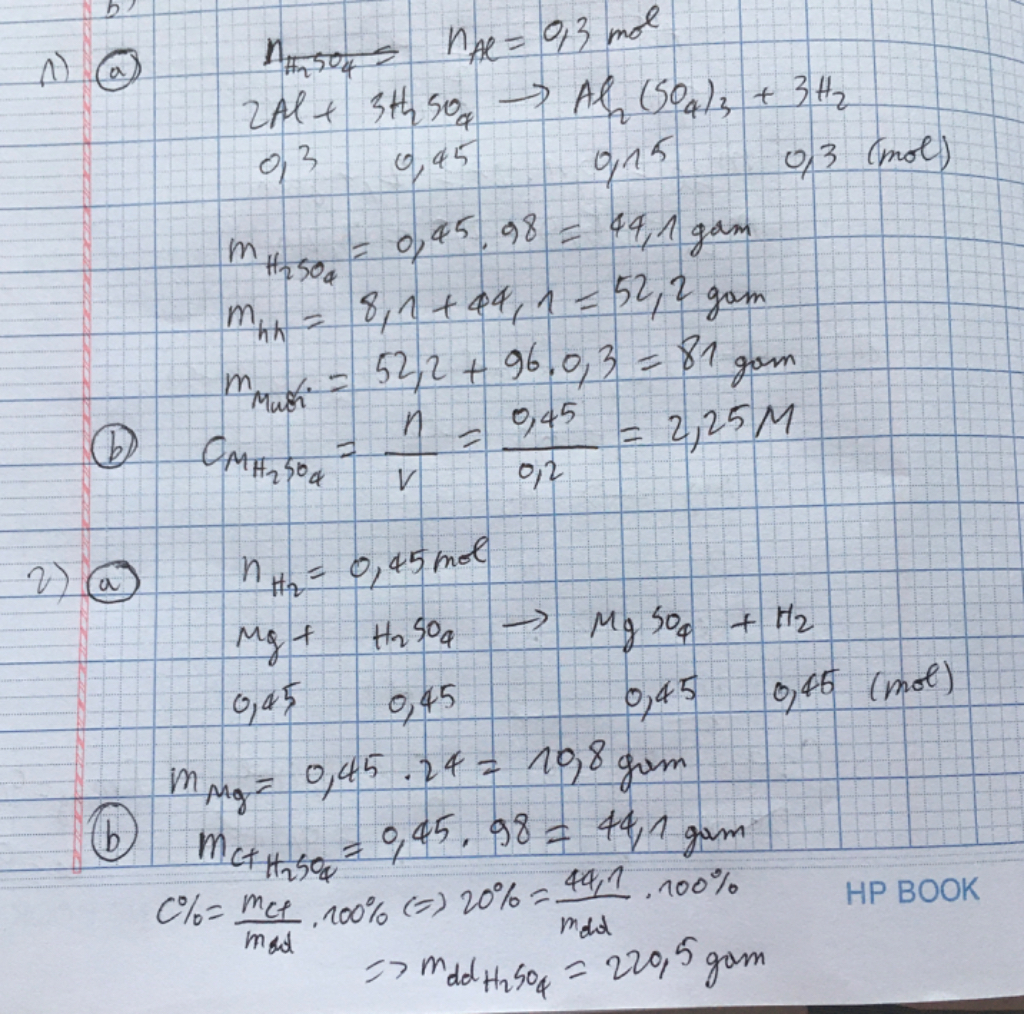 b)
1) a n_H₂SO₄ = n_Al = 0,3 mol
2Al + 3H₂SO₄ → Al₂(SO₄)₃ + 3H₂
0,3 0,45 0,15 0,3 (mol)
m_H₂SO₄ = 0,45 . 98 = 44,1 gam
m_hh = 8,1 + 44,1 = 52,2 gam
m_Muối = 52,2 + 96.0,3 = 81 gam
b C_M H₂SO₄ = n/V = 0,45/0,2 = 2,25 M
2) a n_H₂ = 0,45 mol
Mg + H₂SO₄ → MgSO₄ + H₂
0,45 0,45 0,45 0,45 (mol)
m_Mg = 0,45 . 24 = 10,8 gam
b m_ct H₂SO₄ = 0,45 . 98 = 44,1 gam
C% = m_ct/m_dd . 100% (=) 20% = 44,1/m_dd . 100%
=> m_dd H₂SO₄ = 220,5 gam
HP BOOK